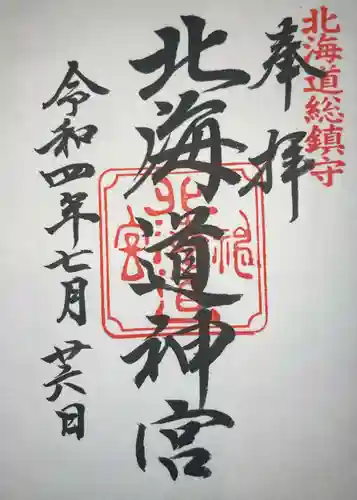 北海道総鎮守
奉拝
北海道神宮
令和四年七月廿六日